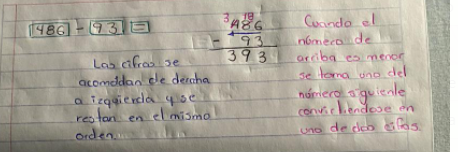 486 - 93 =
Las cifras se
acomodan de derecha
a izquierda y se
restan en el mismo
orden.
3 18
486
- 93
393
Cuando el
número de
arriba es menor
se toma uno del
número siguiente
convirtiendose en
uno de dos cifras.